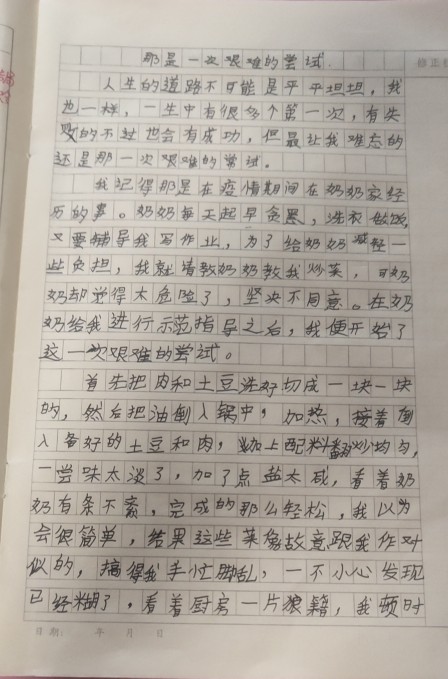 那是一次艰难的尝试.
人生的道路不可能是平平坦坦，我
也一样，一生中有很多个第一次，有失
败的不过也会有成功，但最让我难忘的
还是那一次艰难的尝试。
我记得那是在疫情期间在奶奶家经
历的事。奶奶每天起早贪黑，洗衣做饭，
又要辅导我写作业，为了给奶奶减轻一
些负担，我就请教奶奶教我炒菜，可奶
奶却觉得太危险了，坚决不同意。在奶
奶给我进行示范指导之后，我便开始了
这一次艰难的尝试。
首先把肉和土豆洗好切成一块一块
的，然后把油倒入锅中，加热，接着倒
入备好的土豆和肉，加上配料翻炒均匀，
一尝味太淡了，加了点盐太咸，看着奶
奶有条不紊，完成的那么轻松，我以为
会很简单，结果这些菜像故意跟我作对
似的，搞得我手忙脚乱，一不小心发现
已经糊了，看着厨房一片狼籍，我顿时
日期： 年 月 日